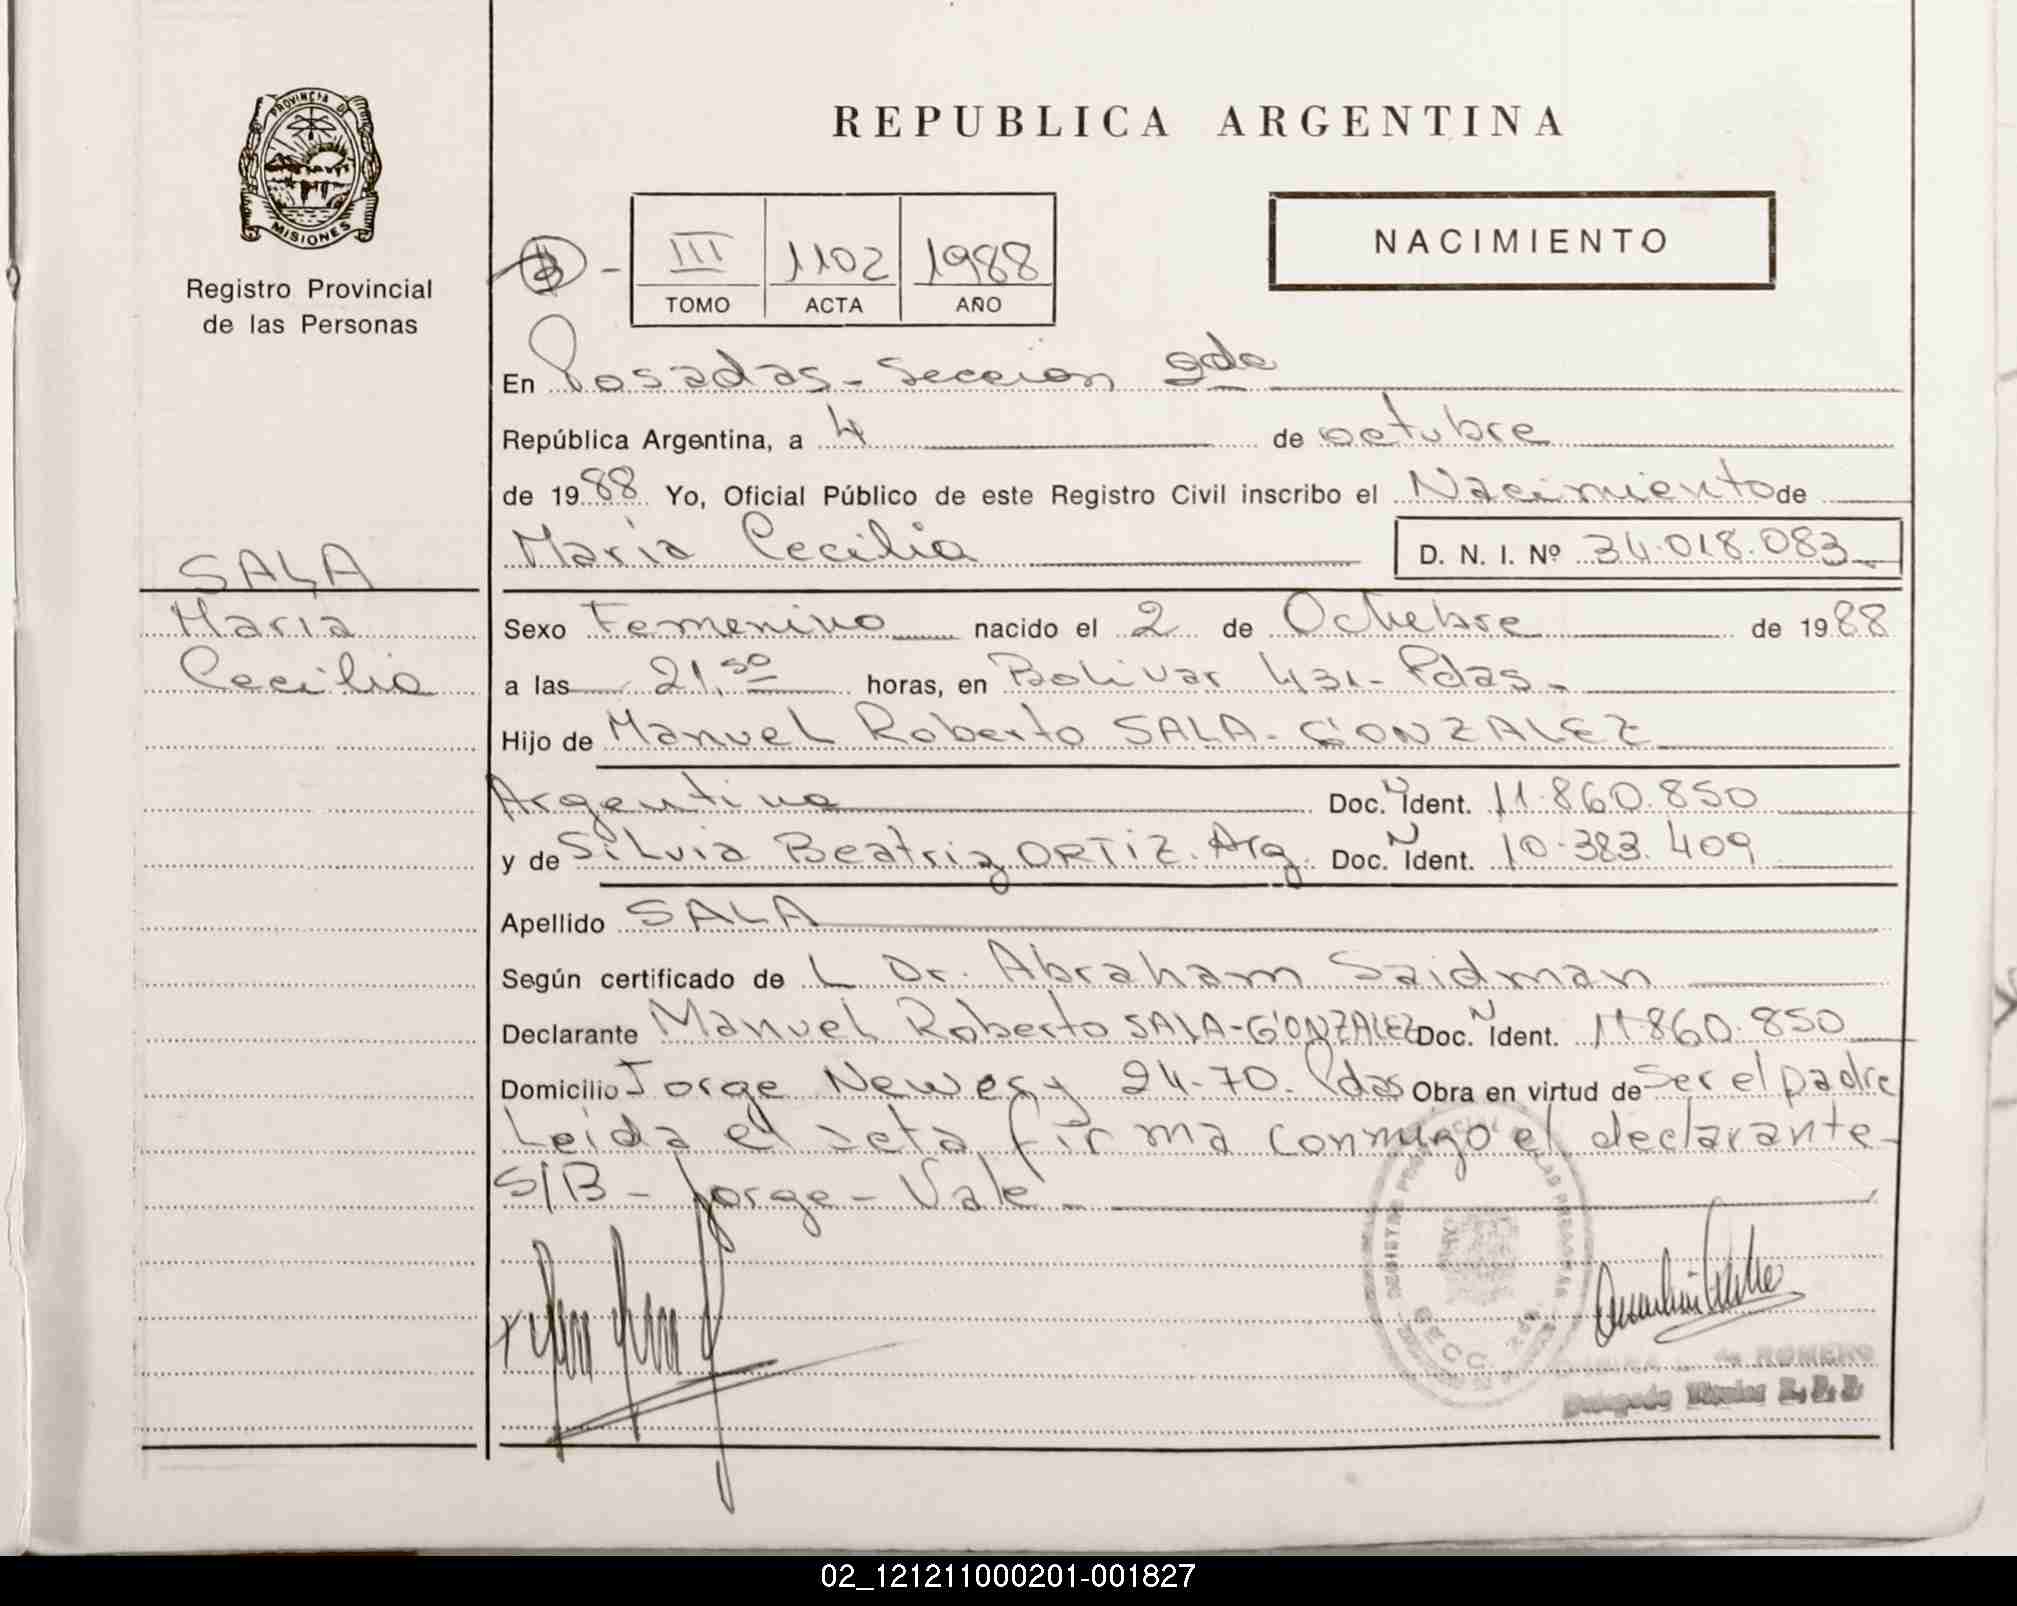 PROVINCIA DE
MISIONES
Registro Provincial
de las Personas
REPUBLICA ARGENTINA
NACIMIENTO
III 1102 1988
TOMO ACTA AÑO
En Posadas - Seccion 2da
República Argentina, a 4 de octubre
de 1988 Yo, Oficial Público de este Registro Civil inscribo el Nacimiento de
Maria Cecilia D. N. I. Nº 34.018.083
SALA
Maria
Cecilia
Sexo Femenino nacido el 2 de Octubre de 1988
a las 21.50 horas, en Bolivar 431 - Pdas -
Hijo de Manuel Roberto SALA - GONZALEZ
Argentino Doc. N Ident. 11.860.850
y de Silvia Beatriz ORTIZ. Arg. Doc. N Ident. 10.383.409
Apellido SALA
Según certificado de L Dr. Abraham Saidman
Declarante Manuel Roberto SALA-GONZALEZ Doc. N Ident. 11.860.850
Domicilio Jorge Newery 24-70. Pdas Obra en virtud de Ser el padre
Leida el acta, firma conmigo el declarante -
S/B - Jorge - Vale -
de ROMERO
Delegado
02_121211000201-001827